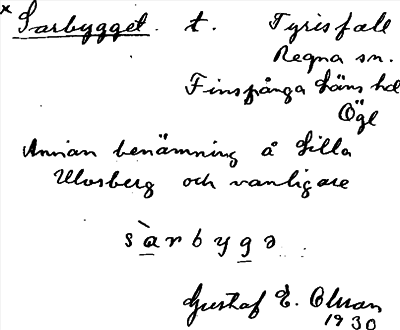 x Sarbygget. t. Tyrisfall
Regna sn.
Finspånga läns hd
Ögl
Annan benämning å Lilla
Ulvsberg och vanligare
sàrbygə
Gustaf E. Olsson
1930